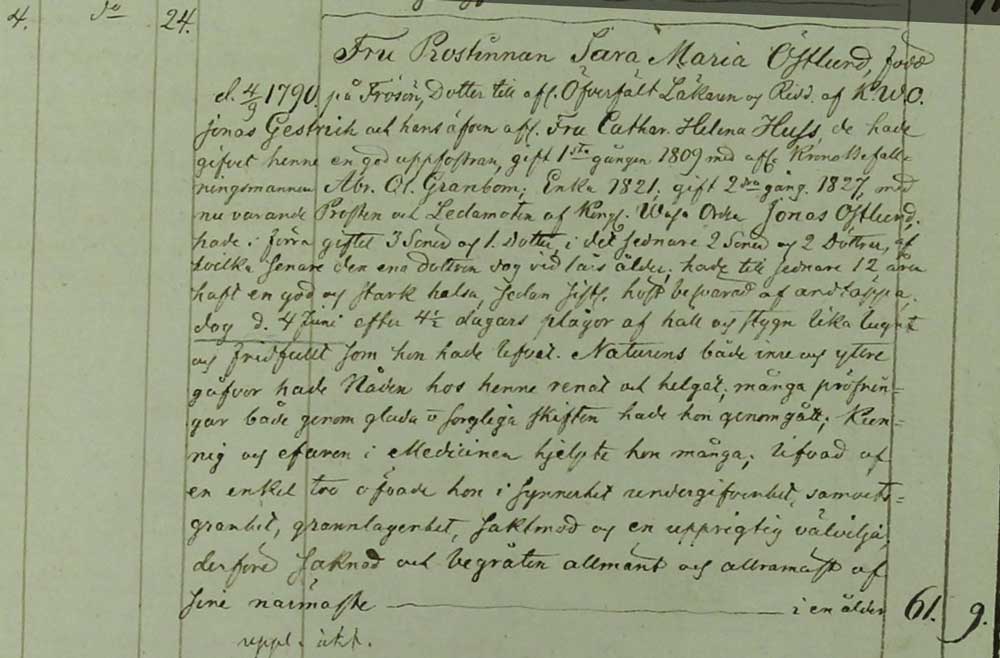 4. do 24.
Fru Prostinnan Sara Maria Östlund, född
d. 4/9 1790. på Frösön, Dotter till afl. Öfverfält Läkaren og Ridd. af K.W.O.
Jonas Gestrich och hans äfven afl. Fru Cathar. Helena Huss, de hade
gifvet henne en god uppfostran, gift 1sta gången 1809 med afl. Kronobefall-
ningsmannen Abr. Ol. Granbom; Enka 1821. gift 2dra gång. 1827, med
nu varande Prosten och Ledamoten af Kongl. Wasa Orden Jonas Östlund;
hade i förra giftet 3 Söner og 1. Dotter, i det sednare 2 Söner og 2 Döttrar, af
hvilka senare den ena dottren dog vid 1 års ålder; hade till sednare 12 åren
haft en god og stark hälsa, sedan sistl. höst besvärad af andtäppa,
dog d. 4 Juni efter 4½ dagars plågor af håll og stygn lika lugnt
og fridfullt som hon hade lefvat. Naturens både inre og yttre
gåfvor hade Nåden hos henne renat och helgat; många pröfnin-
gar både genom glada o sorgliga skiften hade hon genomgått; Kun-
nig og erfaren i Medicinen hjelpte hon många; lifvad af
en enkel tro öfvade hon i synnerhet undergifvenhet, samvets-
granhet, grannlagenhet, saktmod og en upprigtig välvilja;
derföre saknad och begråten allmänt og allramäst af
sine närmaste i en ålder 61. 9.
uppl.